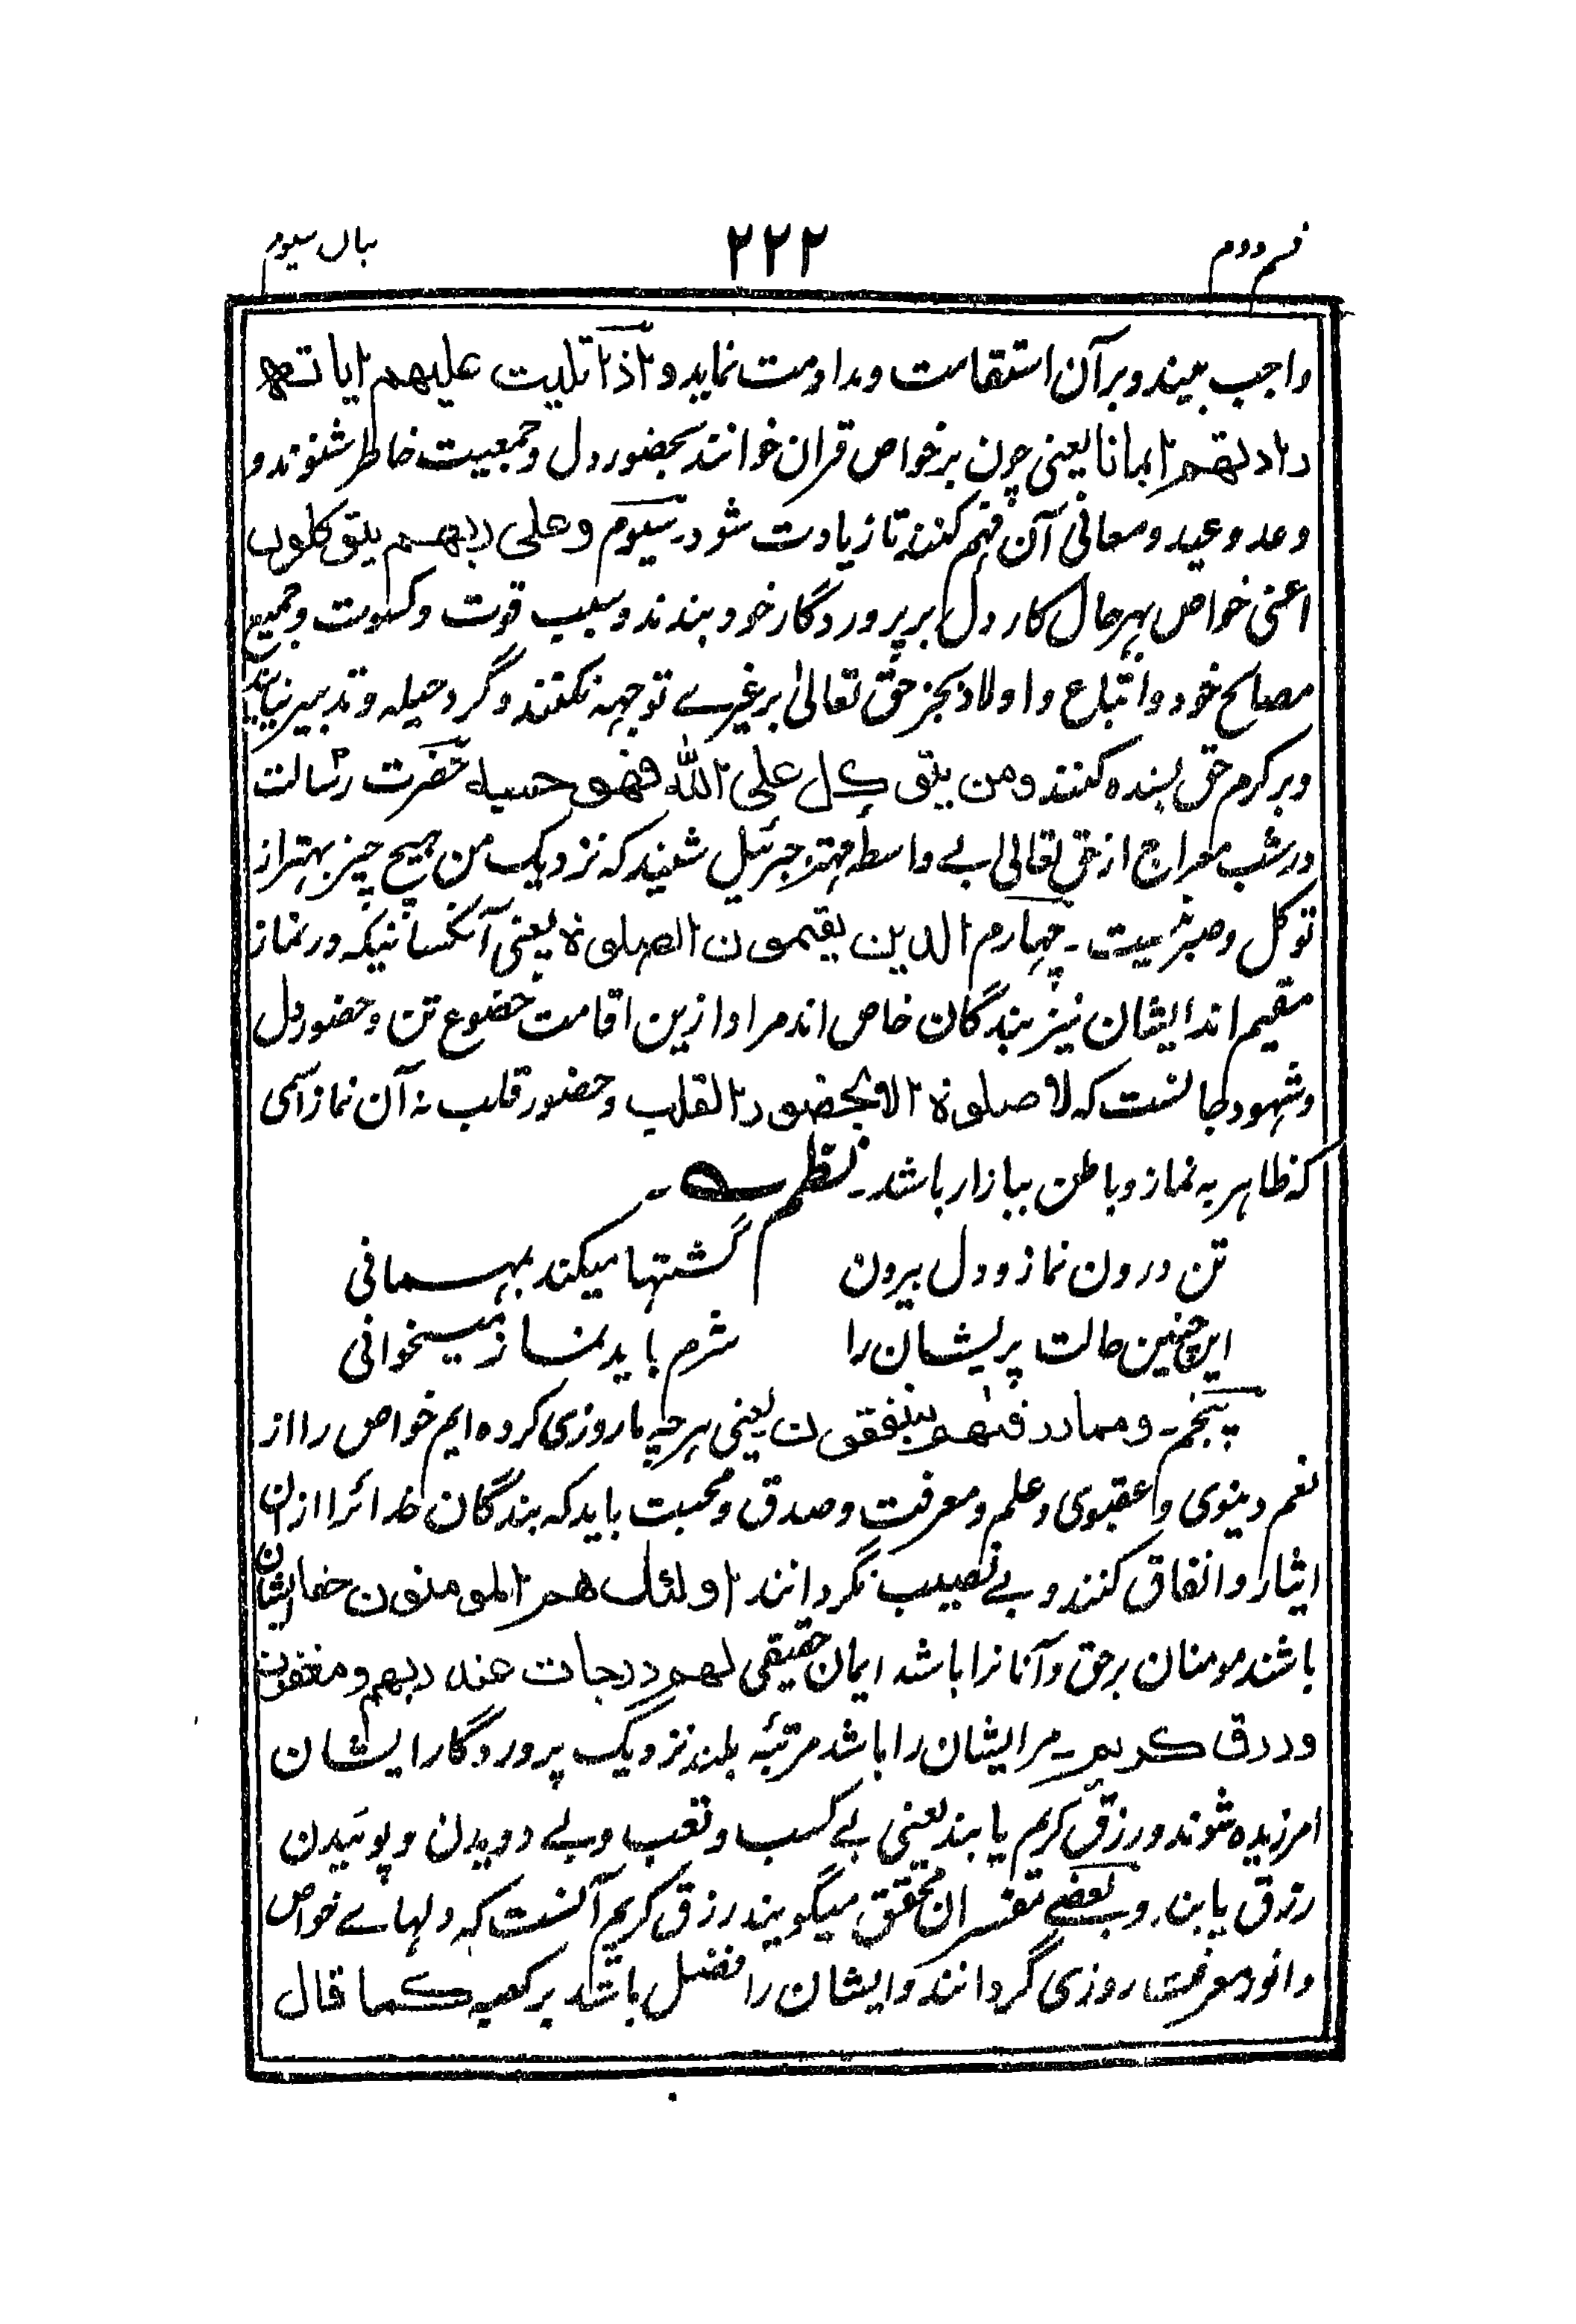 قسم دوم ۲۲۲ بیان سیوم
واجب بینند و بر آن استقامت و مداومت نماید و اذا تلیت علیهم ایاته
زادتهم ایمانا یعنی چون بر خواص قران خوانند بحضور دل و جمعیت خاطر شنوند و
وعد وعید و معانی آن فهم کنند تا زیادت شود۔ سیوم و علی ربهم یتوکلون
اعنی خواص بهر حال کار دل بر پروردگار خود بندند و سبب قوت و کسوت و جمیع
مصالح خود و اتباع و اولاد بجز حق تعالیٰ بر غیرے توجهه نکنند و گرد حیله و تدبیر نیایند
و بر کرم حق بسنده کنند و من یتوکل علی الله فهو حسبه حضرت رسالت
در شب معراج از حق تعالیٰ بے واسطۀ مهتر جبرئیل شنید که نزدیک من هیچ چیز بهتر از
توکل و صبر نیست۔ چهارم الذین یقیمون الصلوة یعنی آنکسانیکه در نماز
مقیم اند ایشان نیز بندگان خاص اند مراد ازین اقامت خضوع تن و حضور دل
و شهود جانست که لا صلوة الا بحضور القلب و حضور قلب نه آن نماز اسمی
که ظاهر به نماز و باطن ببازار باشد۔ نظم ۔
تن درون نماز و دل بیرون گشتها میکند بهمانی
این چنین حالت پریشان را شرم باید نماز میخوانی
پنجم۔ و مما رزقنهم ینفقون یعنی هر چه ما روزی کرده ایم خواص را از
نعم دینوی و عقبوی و علم و معرفت و صدق و محبت باید که بندگان خدائرا ازان
ایثار و انفاق کنند و بے نصیب نگردانند اولئک هم المومنون حقا ایشان
باشند مومنان بر حق و آنانرا باشد ایمان حقیقی لهم درجات عند ربهم و مغفرة
و رزق کریم۔ مر ایشان را باشد مرتبۀ بلند نزدیک پروردگار ایشان
امرزیده شوند و رزق کریم یابند یعنی بے کسب و تعب و بے دویدن و پوئیدن
رزق یابند و بعضے مفسران محقق میگویند رزق کریم آنست که دلهاے خواص
را نور معرفت روزی گردانند و ایشان را فضل باشد بر کعبه کما قال